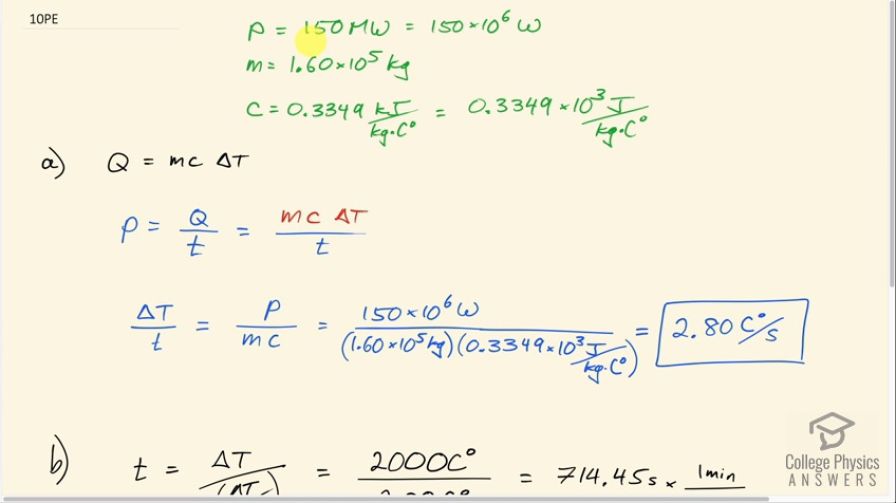 10PE
P = 150 MW = 150×10⁶ W
m = 1.60×10⁵ kg
C = 0.3349 kJ/kg·C° = 0.3349×10³ J/kg·C°
a) Q = mc ΔT
P = Q/t = mc ΔT/t
ΔT/t = P/mc = 150×10⁶ W/(1.60×10⁵ kg)(0.3349×10³ J/kg·C°) = 2.80 C°/s
b) t = ΔT/(ΔT = 2000C° = 714.45 s × 1 min
College Physics
ANSWERS